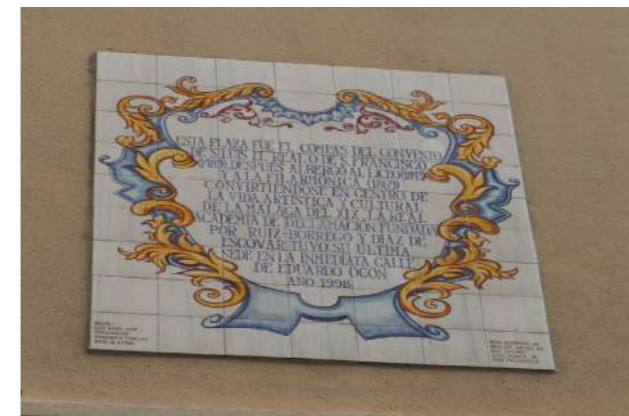 ESTA PLAZA FUE EL COMPAS DEL CONVENTO
DE S. LUIS EL REAL O DE S. FRANCISCO
DESPUÉS ALBERGÓ AL LICEO
Y A LA FILARMÓNICA (1869)
CONVIRTIENDOSE EN CENTRO DE
LA VIDA ARTÍSTICA Y CULTURAL
DE LA MÁLAGA DEL XIX. LA REAL
ACADEMIA DE DECLAMACIÓN FUNDADA
POR RUIZ-BORREGO Y DÍAZ DE
ESCOVAR, TUVO SU ÚLTIMA
SEDE EN LA INMEDIATA CALLE
DE EDUARDO OCÓN
AÑO 1998